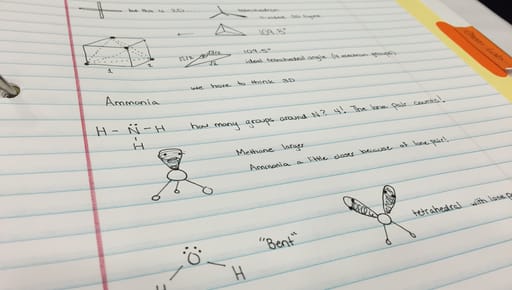 but this is 2D
109.5°
109.5°
ideal tetrahedral angle (4 electron groups)
√2
1
1
we have to think 3D
Ammonia
H - N̈ - H
H
how many groups around N? 4! The lone pair counts!
Methane larger
Ammonia a little closer because of lone pair!
tetrahedral with lone
"Bent"
O
H